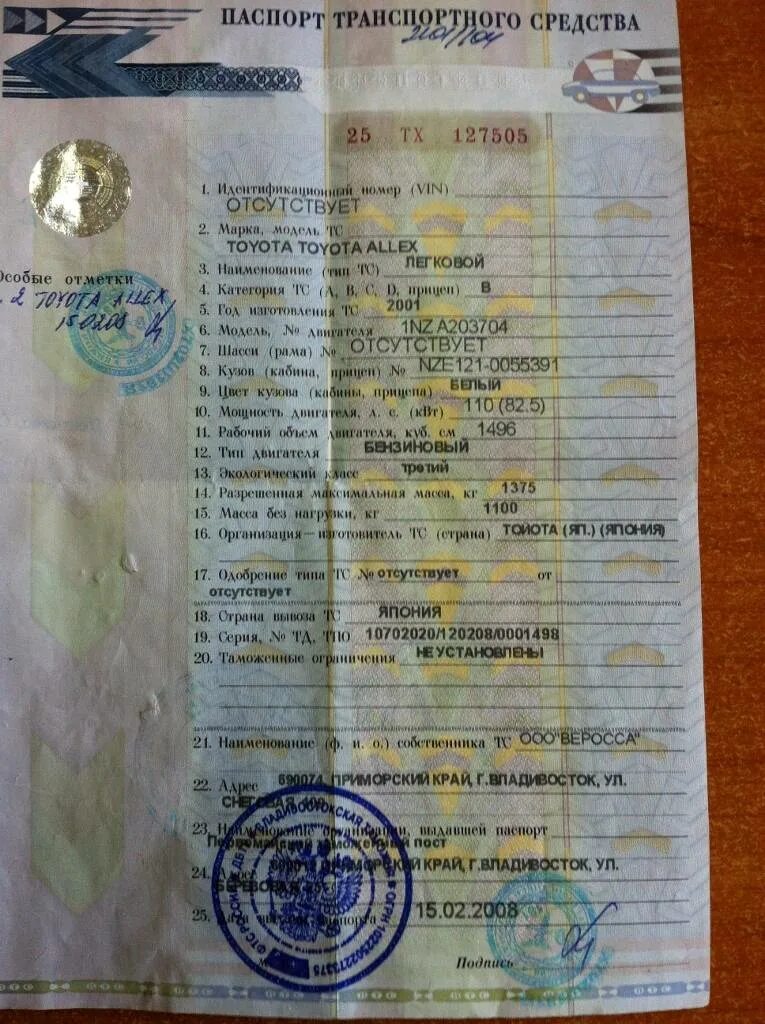 ПАСПОРТ ТРАНСПОРТНОГО СРЕДСТВА
25 ТХ 127505
1. Идентификационный номер (VIN)
ОТСУТСТВУЕТ
2. Марка, модель ТС
TOYOTA TOYOTA ALLEX
3. Наименование (тип ТС) ЛЕГКОВОЙ
Особые отметки
4. Категория ТС (А, В, С, D, прицеп) В
2 TOYOTA ALLEX
5. Год изготовления ТС 2001
150208
6. Модель, № двигателя 1NZ A203704
7. Шасси (рама) № ОТСУТСТВУЕТ
8. Кузов (кабина, прицеп) № NZE121-0055391
9. Цвет кузова (кабины, прицепа) БЕЛЫЙ
10. Мощность двигателя, л. с. (кВт) 110 (82.5)
11. Рабочий объем двигателя, куб. см 1496
12. Тип двигателя БЕНЗИНОВЫЙ
13. Экологический класс третий
14. Разрешенная максимальная масса, кг 1375
15. Масса без нагрузки, кг 1100
16. Организация—изготовитель ТС (страна) ТОЙОТА (ЯП.) (ЯПОНИЯ)
17. Одобрение типа ТС № отсутствует от
отсутствует
18. Страна вывоза ТС ЯПОНИЯ
19. Серия, № ТД, ТПО 10702020/120208/0001498
20. Таможенные ограничения НЕ УСТАНОВЛЕНЫ
21. Наименование (ф. и. о.) собственника ТС ООО"ВЕРОССА"
22. Адрес 690074, ПРИМОРСКИЙ КРАЙ, Г.ВЛАДИВОСТОК, УЛ.
СНЕГОВАЯ
23. Наименование организации, выдавшей паспорт
Первомайский таможенный пост
24. Адрес ПРИМОРСКИЙ КРАЙ, Г.ВЛАДИВОСТОК, УЛ.
БЕРЕЗОВАЯ
25. Дата выдачи паспорта 15.02.2008
Подпись